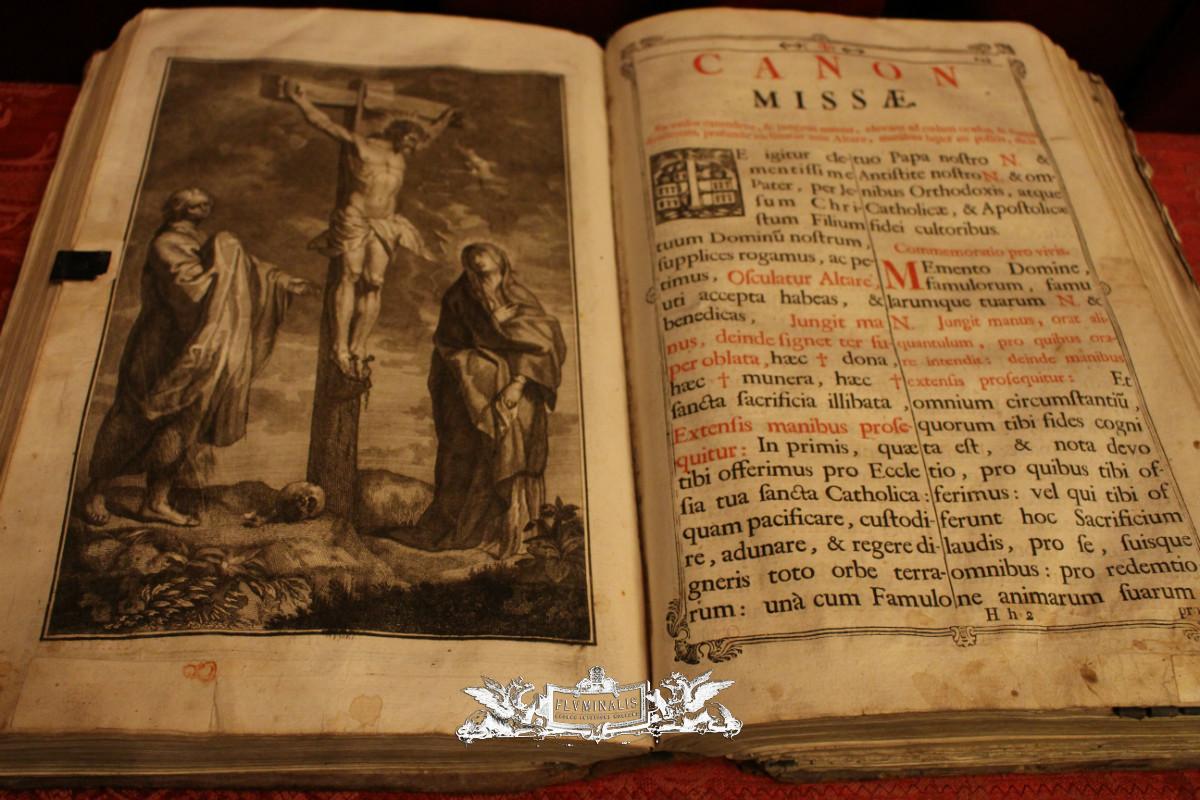 CANON
MISSÆ.
TE igitur, cle-
mentissime
Pater, per Je-
sum Chri-
stum Filium
tuum Dominũ nostrum,
supplices rogamus, ac pe-
timus, Osculatur Altare,
uti accepta habeas, &
benedicas, Jungit ma
nus, deinde signet ter su-
per oblata, hæc † dona,
hæc † munera, hæc †
sancta sacrificia illibata,
Extensis manibus prose-
quitur: In primis, quæ
tibi offerimus pro Eccle
sia tua sancta Catholica:
quam pacificare, custodi-
re, adunare, & regere di-
gneris toto orbe terra-
rum: unà cum Famulo
tuo Papa nostro N. &
Antistite nostro N. & om-
nibus Orthodoxis, atque
Catholicæ, & Apostolicæ
fidei cultoribus.
Commemoratio pro vivis.
MEmento Domine,
famulorum, famu
larumque tuarum N. &
N. Jungit manus, orat ali-
quantulum, pro quibus ora-
re intendit: deinde manibus
extensis prosequitur: Et
omnium circumstantiũ,
quorum tibi fides cogni
ta est, & nota devo
tio, pro quibus tibi of-
ferimus: vel qui tibi of
ferunt hoc Sacrificium
laudis, pro se, suisque
omnibus: pro redemtio
ne animarum suarum
H h 2
FLVMINALIS